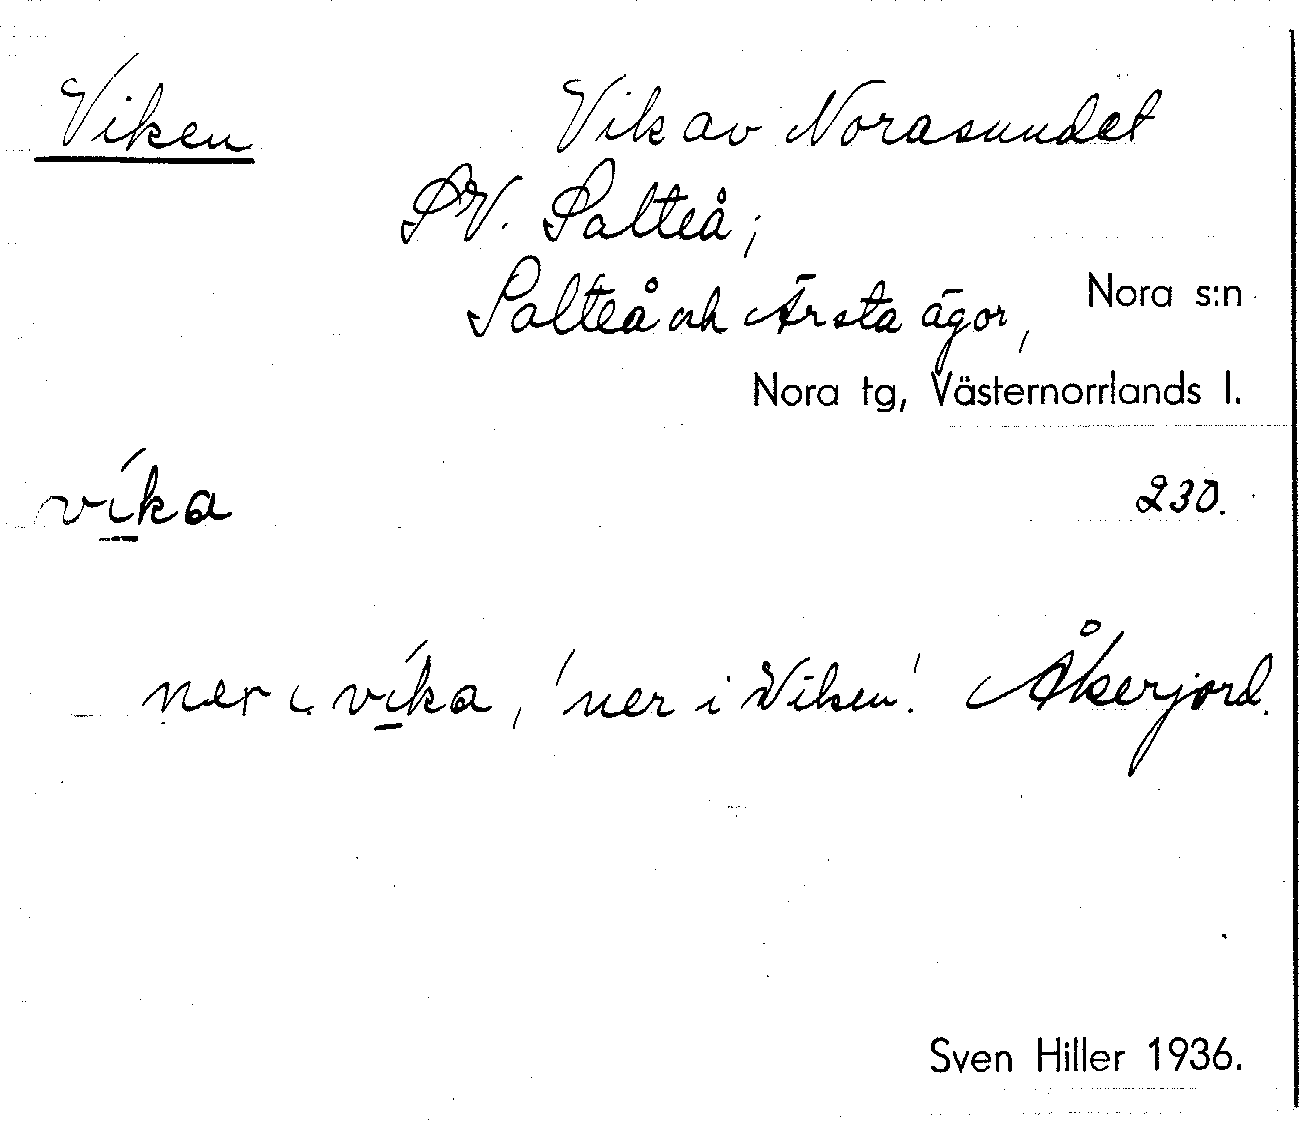 Viken Vik av Norasundet
SV. Salteå;
Salteå och Ärsta ägor, Nora s:n
Nora tg, Västernorrlands l.
víka 230.
ner i víka, 'ner i Viken'. Åkerjord.
Sven Hiller 1936.